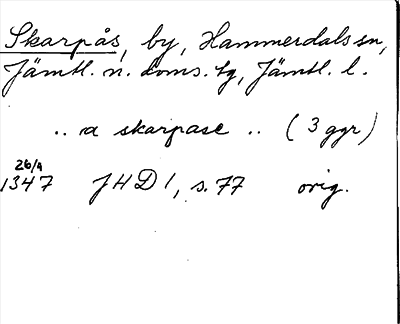 Skarpås, by, Hammerdals sn,
Jämtl. n. doms. tg, Jämtl. l.
.. a skarpase .. (3 ggr)
26/4
1347 JHD 1, s. 77 orig.